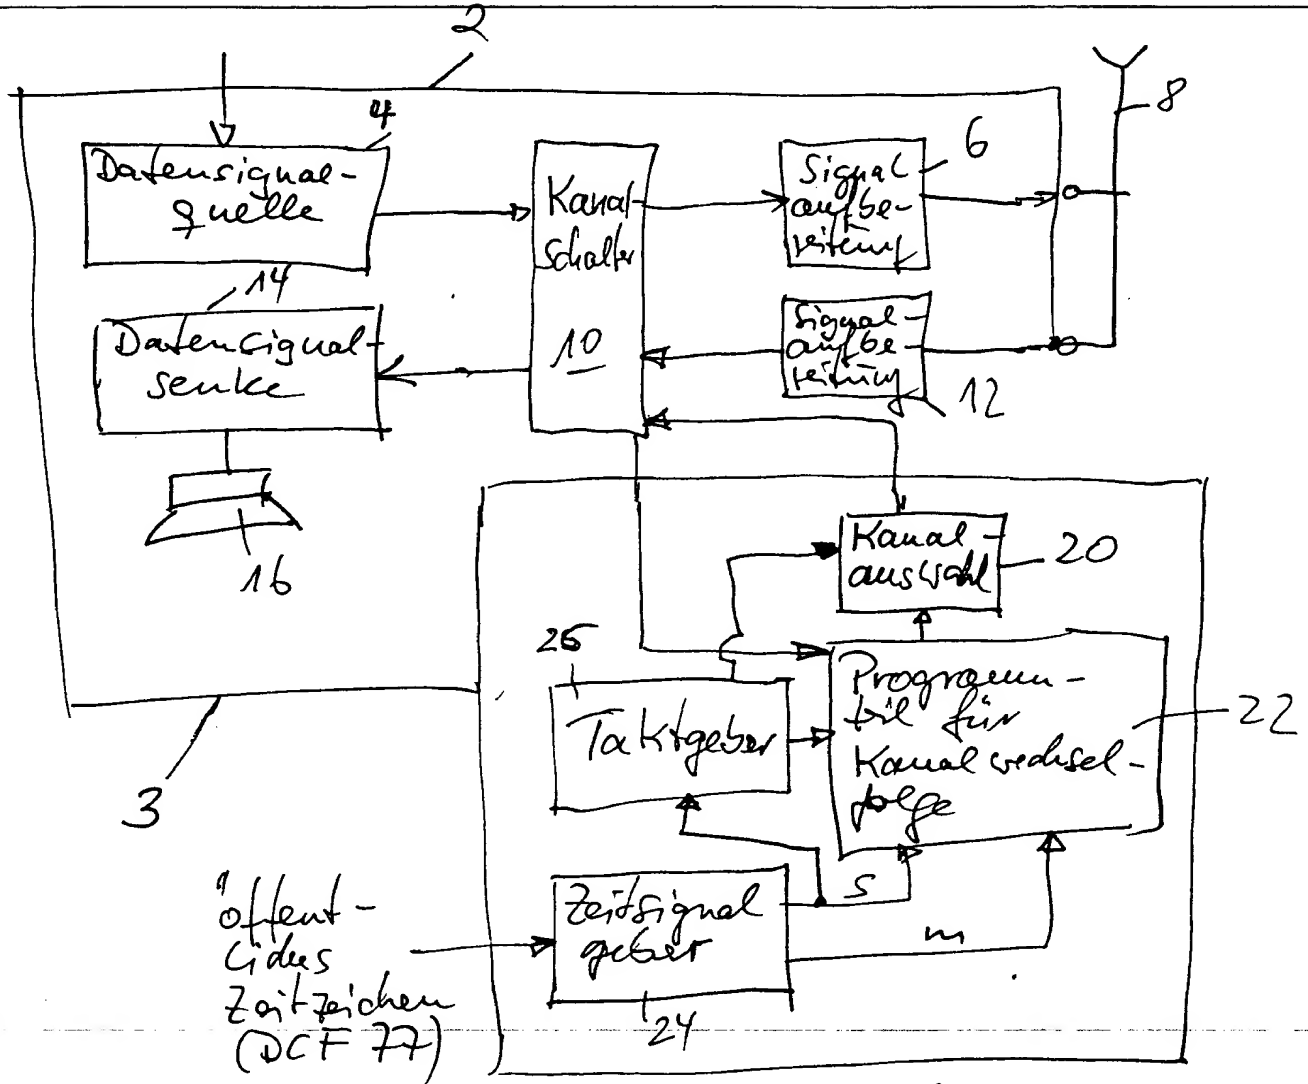 2
8
4
Datensignal-
quelle
Kanal
schalter
10
Signal
aufbe-
reitung
6
14
Datensignal-
senke
Signal-
aufbe
reitung
12
16
Kanal-
auswahl
20
26
Taktgeber
Programm-
teil für
Kanalwechsel-
folge
22
3
öffent-
liches
Zeitzeichen
(DCF 77)
Zeitsignal
geber
s
m
24